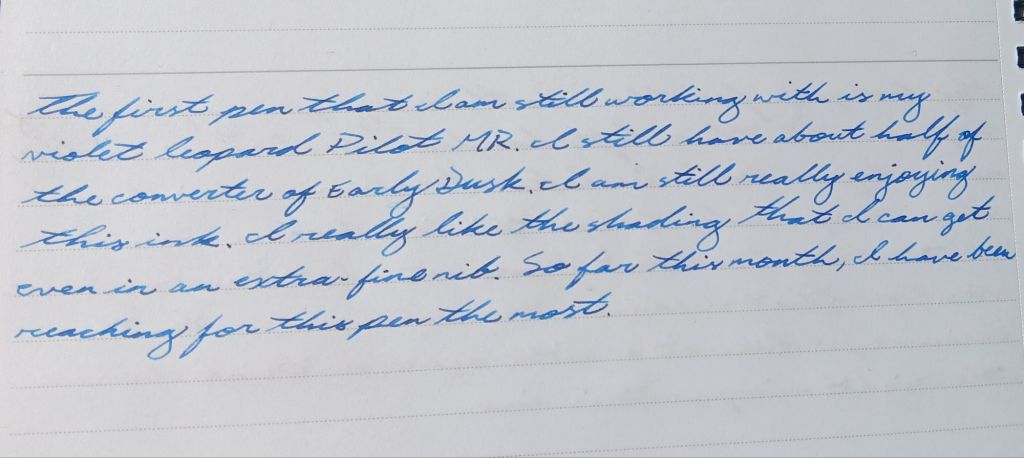 The first pen that I am still working with is my
violet leopard Pilot MR. I still have about half of
the converter of Early Dusk. I am still really enjoying
this ink. I really like the shading that I can get
even in an extra-fine nib. So far this month, I have been
reaching for this pen the most.